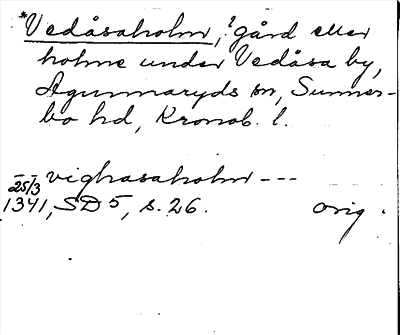 *Vedåsaholm, ? gård eller
holme under Vedåsa by,
Agunnaryds sn, Sunner-
bo hd, Kronob. l.
25/3 vighasaholm ---
1341, SD 5, s. 26. orig.